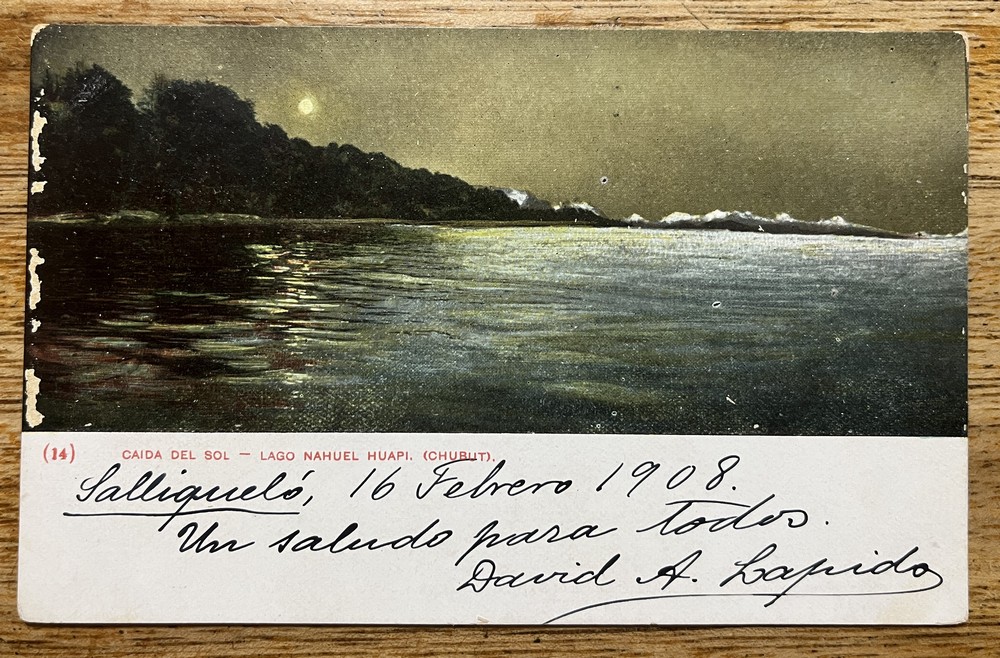 (14) CAIDA DEL SOL — LAGO NAHUEL HUAPI. (CHUBUT).
Salliqueló, 16 Febrero 1908.
Un saludo para todos.
David A. Lapido